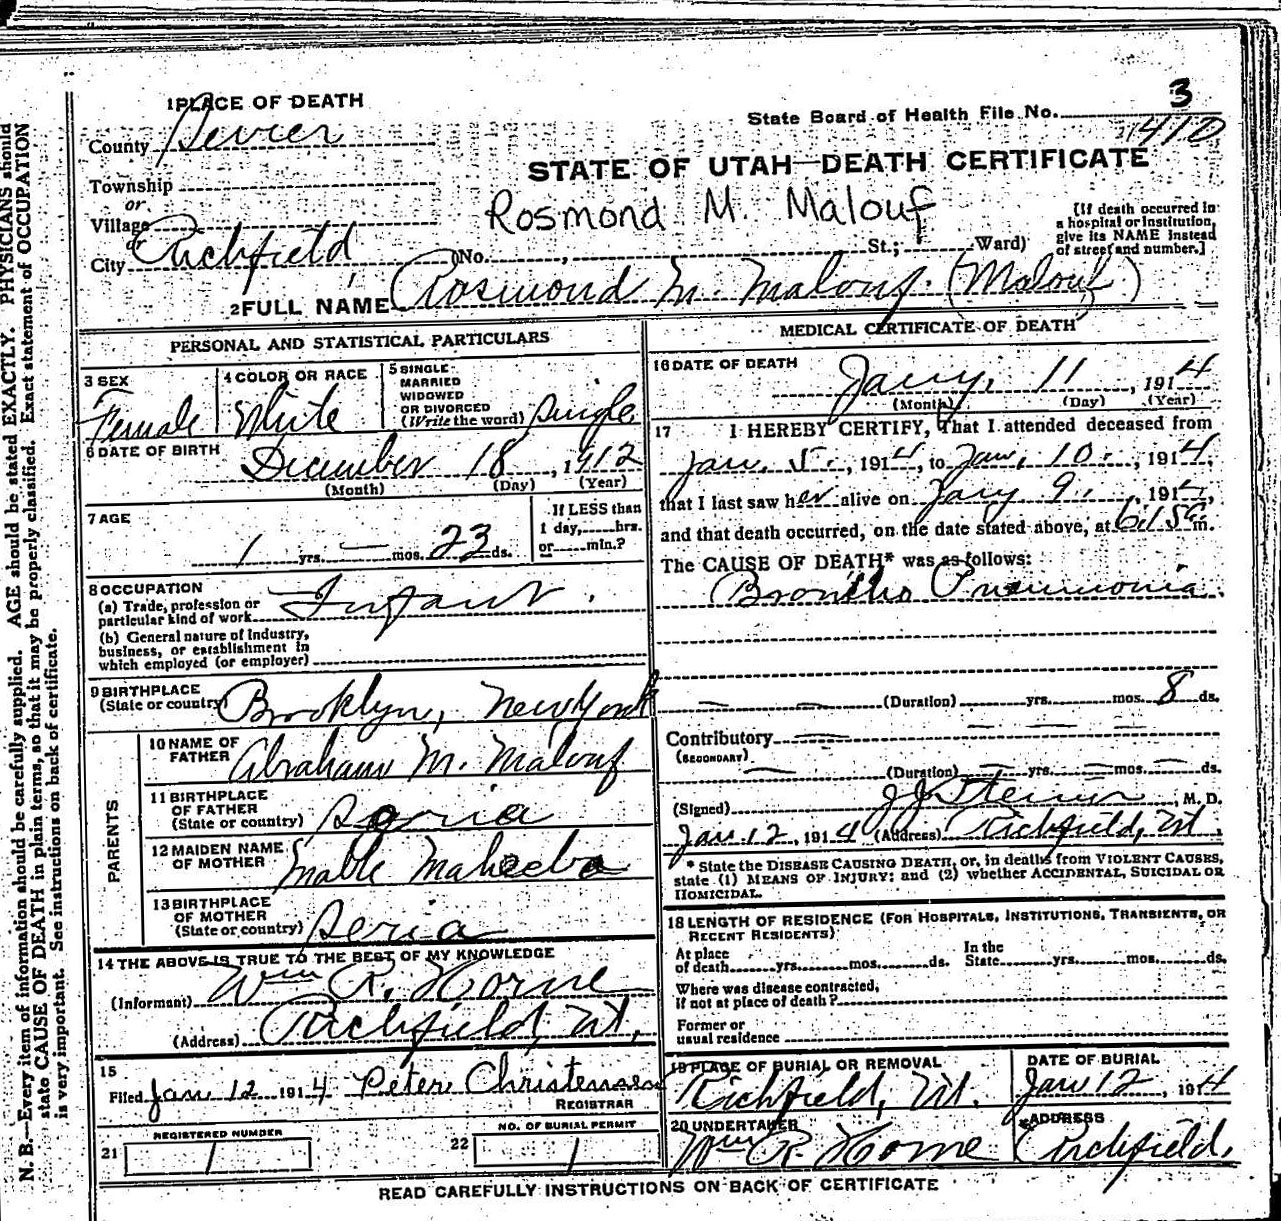 3
1410
1 PLACE OF DEATH
State Board of Health File No.
County Sevier
STATE OF UTAH—DEATH CERTIFICATE
Township
or
Village
Rosmond M. Malouf
or
City Richfield (No. , St.; Ward)
[If death occurred in
a hospital or institution,
give its NAME instead
of street and number.]
2 FULL NAME Rosmond M. Malouf. (Malouf)
PERSONAL AND STATISTICAL PARTICULARS
3 SEX
Female
4 COLOR OR RACE
White
5 SINGLE
MARRIED
WIDOWED
OR DIVORCED
(Write the word) Single
6 DATE OF BIRTH
December 18, 1912
(Month) (Day) (Year)
7 AGE
1 yrs. — mos. 23 ds.
If LESS than
1 day,......hrs.
or......min.?
8 OCCUPATION
(a) Trade, profession or
particular kind of work Infant.
(b) General nature of industry,
business, or establishment in
which employed (or employer)
9 BIRTHPLACE
(State or country) Brooklyn, New York
PARENTS
10 NAME OF
FATHER Abraham M. Malouf
11 BIRTHPLACE
OF FATHER
(State or country) Syria
12 MAIDEN NAME
OF MOTHER Mable Maheeba
13 BIRTHPLACE
OF MOTHER
(State or country) Seria
14 THE ABOVE IS TRUE TO THE BEST OF MY KNOWLEDGE
(Informant) Wm R. Horne
(Address) Richfield, Ut.
15
Filed Jan. 12 1914 Peter Christensen
REGISTRAR
21 REGISTERED NUMBER
1
22 NO. OF BURIAL PERMIT
1
MEDICAL CERTIFICATE OF DEATH
16 DATE OF DEATH
Jany. 11, 1914
(Month) (Day) (Year)
17 I HEREBY CERTIFY, That I attended deceased from
Jan. 5., 1914, to Jan. 10., 1914,
that I last saw her alive on Jany 9., 1914,
and that death occurred, on the date stated above, at 6:15 a m.
The CAUSE OF DEATH* was as follows:
Broncho Pneumonia.
— — (Duration) yrs. mos. 8 ds.
Contributory — — — —
(SECONDARY)
— (Duration) — yrs. — mos. — ds.
(Signed) J J Steiner, M. D.
Jan 12, 1914 (Address) Richfield, Ut.
* State the DISEASE CAUSING DEATH, or, in deaths from VIOLENT CAUSES,
state (1) MEANS OF INJURY; and (2) whether ACCIDENTAL, SUICIDAL OR
HOMICIDAL.
18 LENGTH OF RESIDENCE (FOR HOSPITALS, INSTITUTIONS, TRANSIENTS, OR
RECENT RESIDENTS)
At place
of death......yrs......mos......ds.
In the
State......yrs......mos......ds.
Where was disease contracted,
if not at place of death?
Former or
usual residence
19 PLACE OF BURIAL OR REMOVAL
Richfield, Ut.
DATE OF BURIAL
Jan 12, 1914
20 UNDERTAKER
Wm R. Horne
ADDRESS
Richfield.
READ CAREFULLY INSTRUCTIONS ON BACK OF CERTIFICATE
N. B.—Every item of information should be carefully supplied. AGE should be stated EXACTLY. PHYSICIANS should
state CAUSE OF DEATH in plain terms, so that it may be properly classified. Exact statement of OCCUPATION
is very important. See instructions on back of certificate.